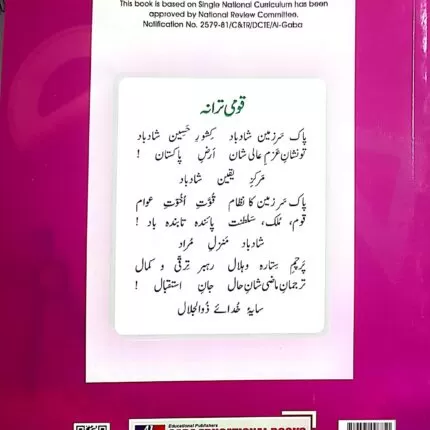 This book is based on Single National Curriculum has been
approved by National Review Committee.
Notification No. 2579-81/C&TR/DCTE/Al-Gaba
قومی ترانہ
پاک سرزمین شادباد کشورِ حسین شادباد
تو نشانِ عزمِ عالی شان ارضِ پاکستان !
مرکزِ یقین شادباد
پاک سرزمین کا نظام قوّتِ اُخوّتِ عوام
قوم، مُلک، سَلطنت پائندہ تابندہ باد !
شادباد منزلِ مُراد
پرچمِ ستارہ و ہلال رہبرِ ترقّی و کمال
ترجمانِ ماضی شانِ حال جانِ استقبال !
سایۂ خدائے ذُوالجلال
Educational Publishers